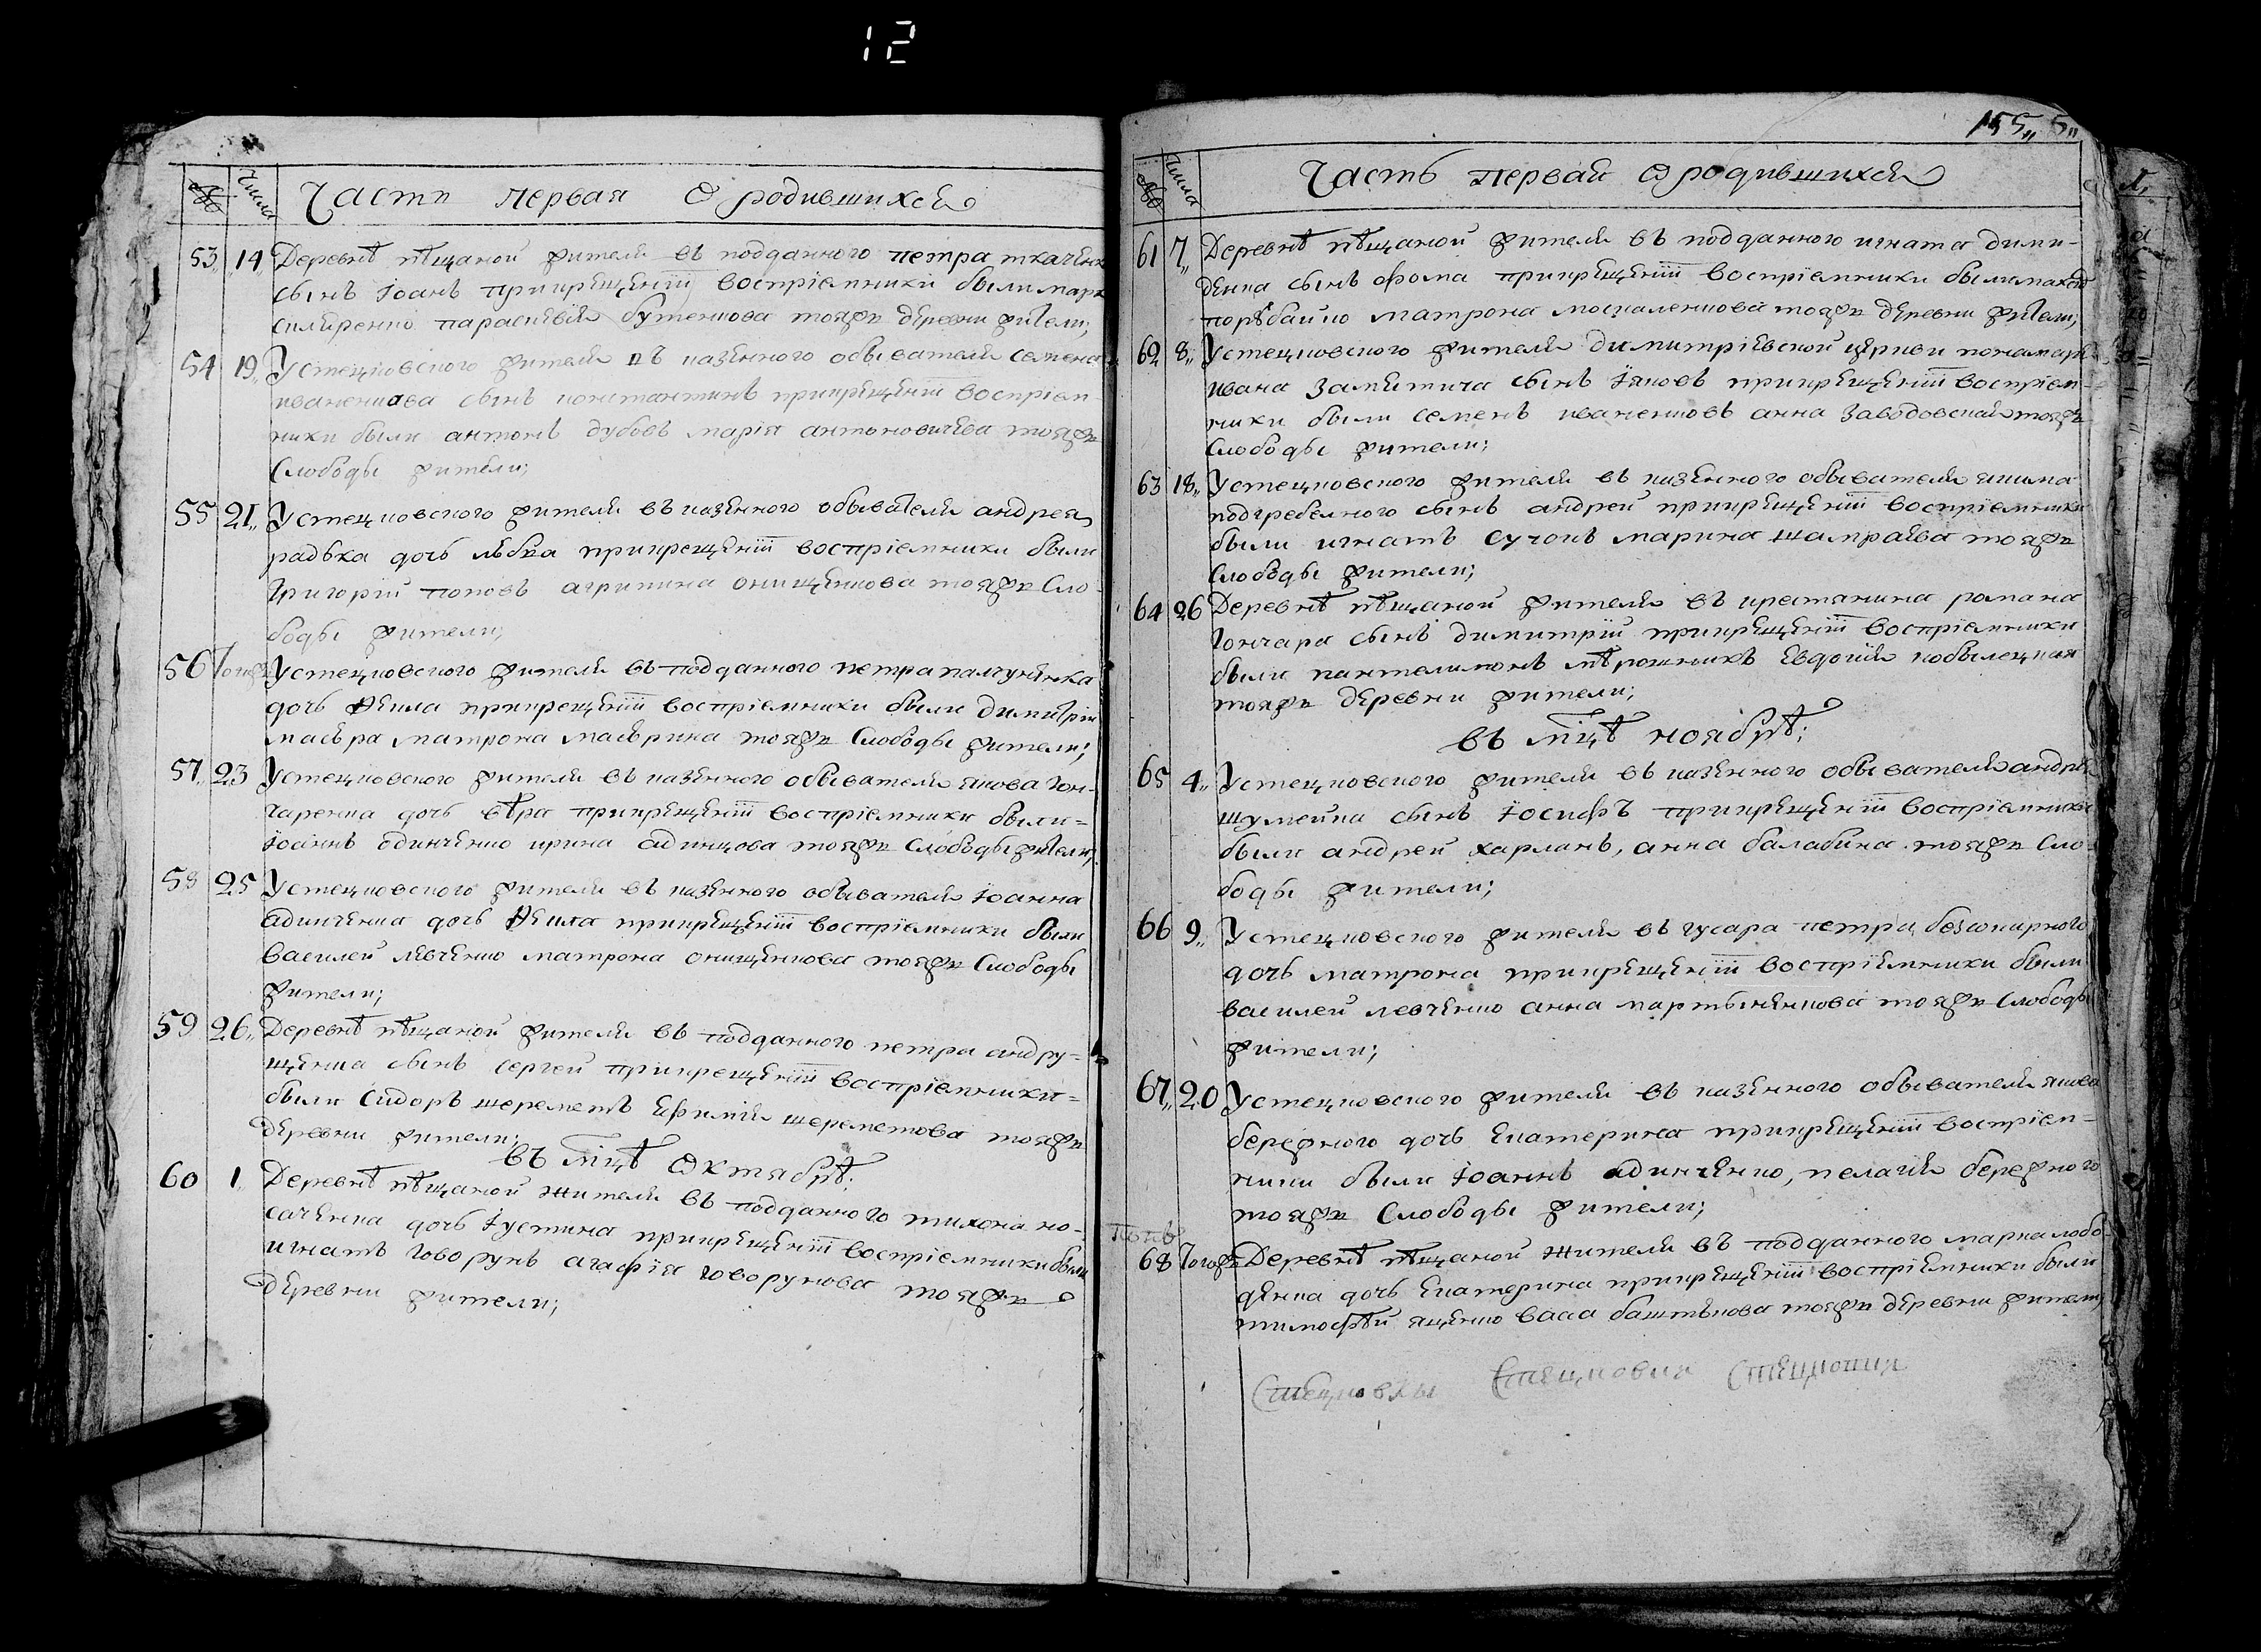 12
№ Числа Часть первая О родившихся
53 14 Деревнѣ пѣщаной жителя въ подданного петра ткаченк
сынъ іоанъ прикрещеніи воспріемники были марк
смиренко параскевія бутенкова тояже деревни жители;
54 19 Устецковского жителя въ казенного обывателя семена
иваненкова сынъ константинъ прикрещеніи воспріем-
ники были антонъ дубовъ марія антоновичева тояже
Слободы жители;
55 21 Устецковского жителя въ казенного обывателя андрея
радька дочь любка прикрещеніи воспріемники были
Григорій поповъ агрипина онищенкова тояже Сло-
боды жители;
56 Тогожъ Устецковского жителя въ подданного петра
дочь Ѳекла прикрещеніи воспріемники были димитрій
маѣвра матрона тояже Слободы жители;
57 23 Устецковского жителя въ казенного обывателя якова гон-
чаренка дочь вѣра прикрещеніи воспріемники были=
іоаннъ одинченко ирина одинцова тояже Слободы жители;
58 25 Устецковского жителя въ казенного обывателя іоанна
адинченка дочь Ѳекла прикрещеніи воспріемники были
василей левченко матрона онищенкова тояже Слободы
жители;
59 26 Деревнѣ пѣщаной жителя въ подданного петра андру=
щенка сынъ сергей прикрещеніи воспріемники=
были Сидоръ шереметъ ефимія шереметова тояже
деревни жители;
въ мцѣ Октябрѣ:
60 1 Деревнѣ пѣщаной жителя въ подданного тихона но-
саченка дочь іустина прикрещеніи воспріемники были
игнатъ говорунъ агафія говорунова тояже
деревни жители;
155 5
№ Числа Часть первай О родившихся
61 7 Деревнѣ пѣщаной жителя въ подданного игната дими-
денка сынъ фома прикрещеніи воспріемники были
порѣбайко матрона москаленкова тояже деревни жители;
62 8 Устецковского жителя димитріевской церкви понамаря
ивана сынъ іяковъ прикрещеніи воспріем-
ники были семенъ иваненковъ анна заводовская тояже
Слободы жители;
63 18 Устецковского жителя въ казенного обывателя якима
подгребелного сынъ андрей прикрещеніи воспріемники
были игнатъ сучокъ марина шапраева тояже
Слободы жители;
64 26 Деревнѣ пѣщаной жителя въ крестянина романа
гончара сынъ димитрій прикрещеніи воспріемники
были пантелимонъ мѣрошникъ евдокія кобылецкая
тояже деревни жители;
въ мцѣ ноябрѣ:
65 4 Устецковского жителя въ казенного обывателя андрея
шумейка сынъ іосифъ прикрещеніи воспріемники
были андрей харланъ, анна балабина тояже Сло-
боды жители;
66 9 Устецковского жителя въ гусара петра
дочь матрона прикрещеніи воспріемники были
василей левченко анна мартыненкова тояже слободы
жители;
67 20 Устецковского жителя въ казенного обывателя якова
бережного дочь екатерина прикрещеніи воспріем-
ники были іоаннъ адинченко, пелагія бережного
тояже Слободы жители;
68 Тогожъ Деревнѣ пѣщаной жителя въ подданного марка лобо-
денка дочь екатерина прикрещеніи воспріемники были
тимофѣй яценко васса баштыкова тояже деревни жители;
Стецковкы Стецковка